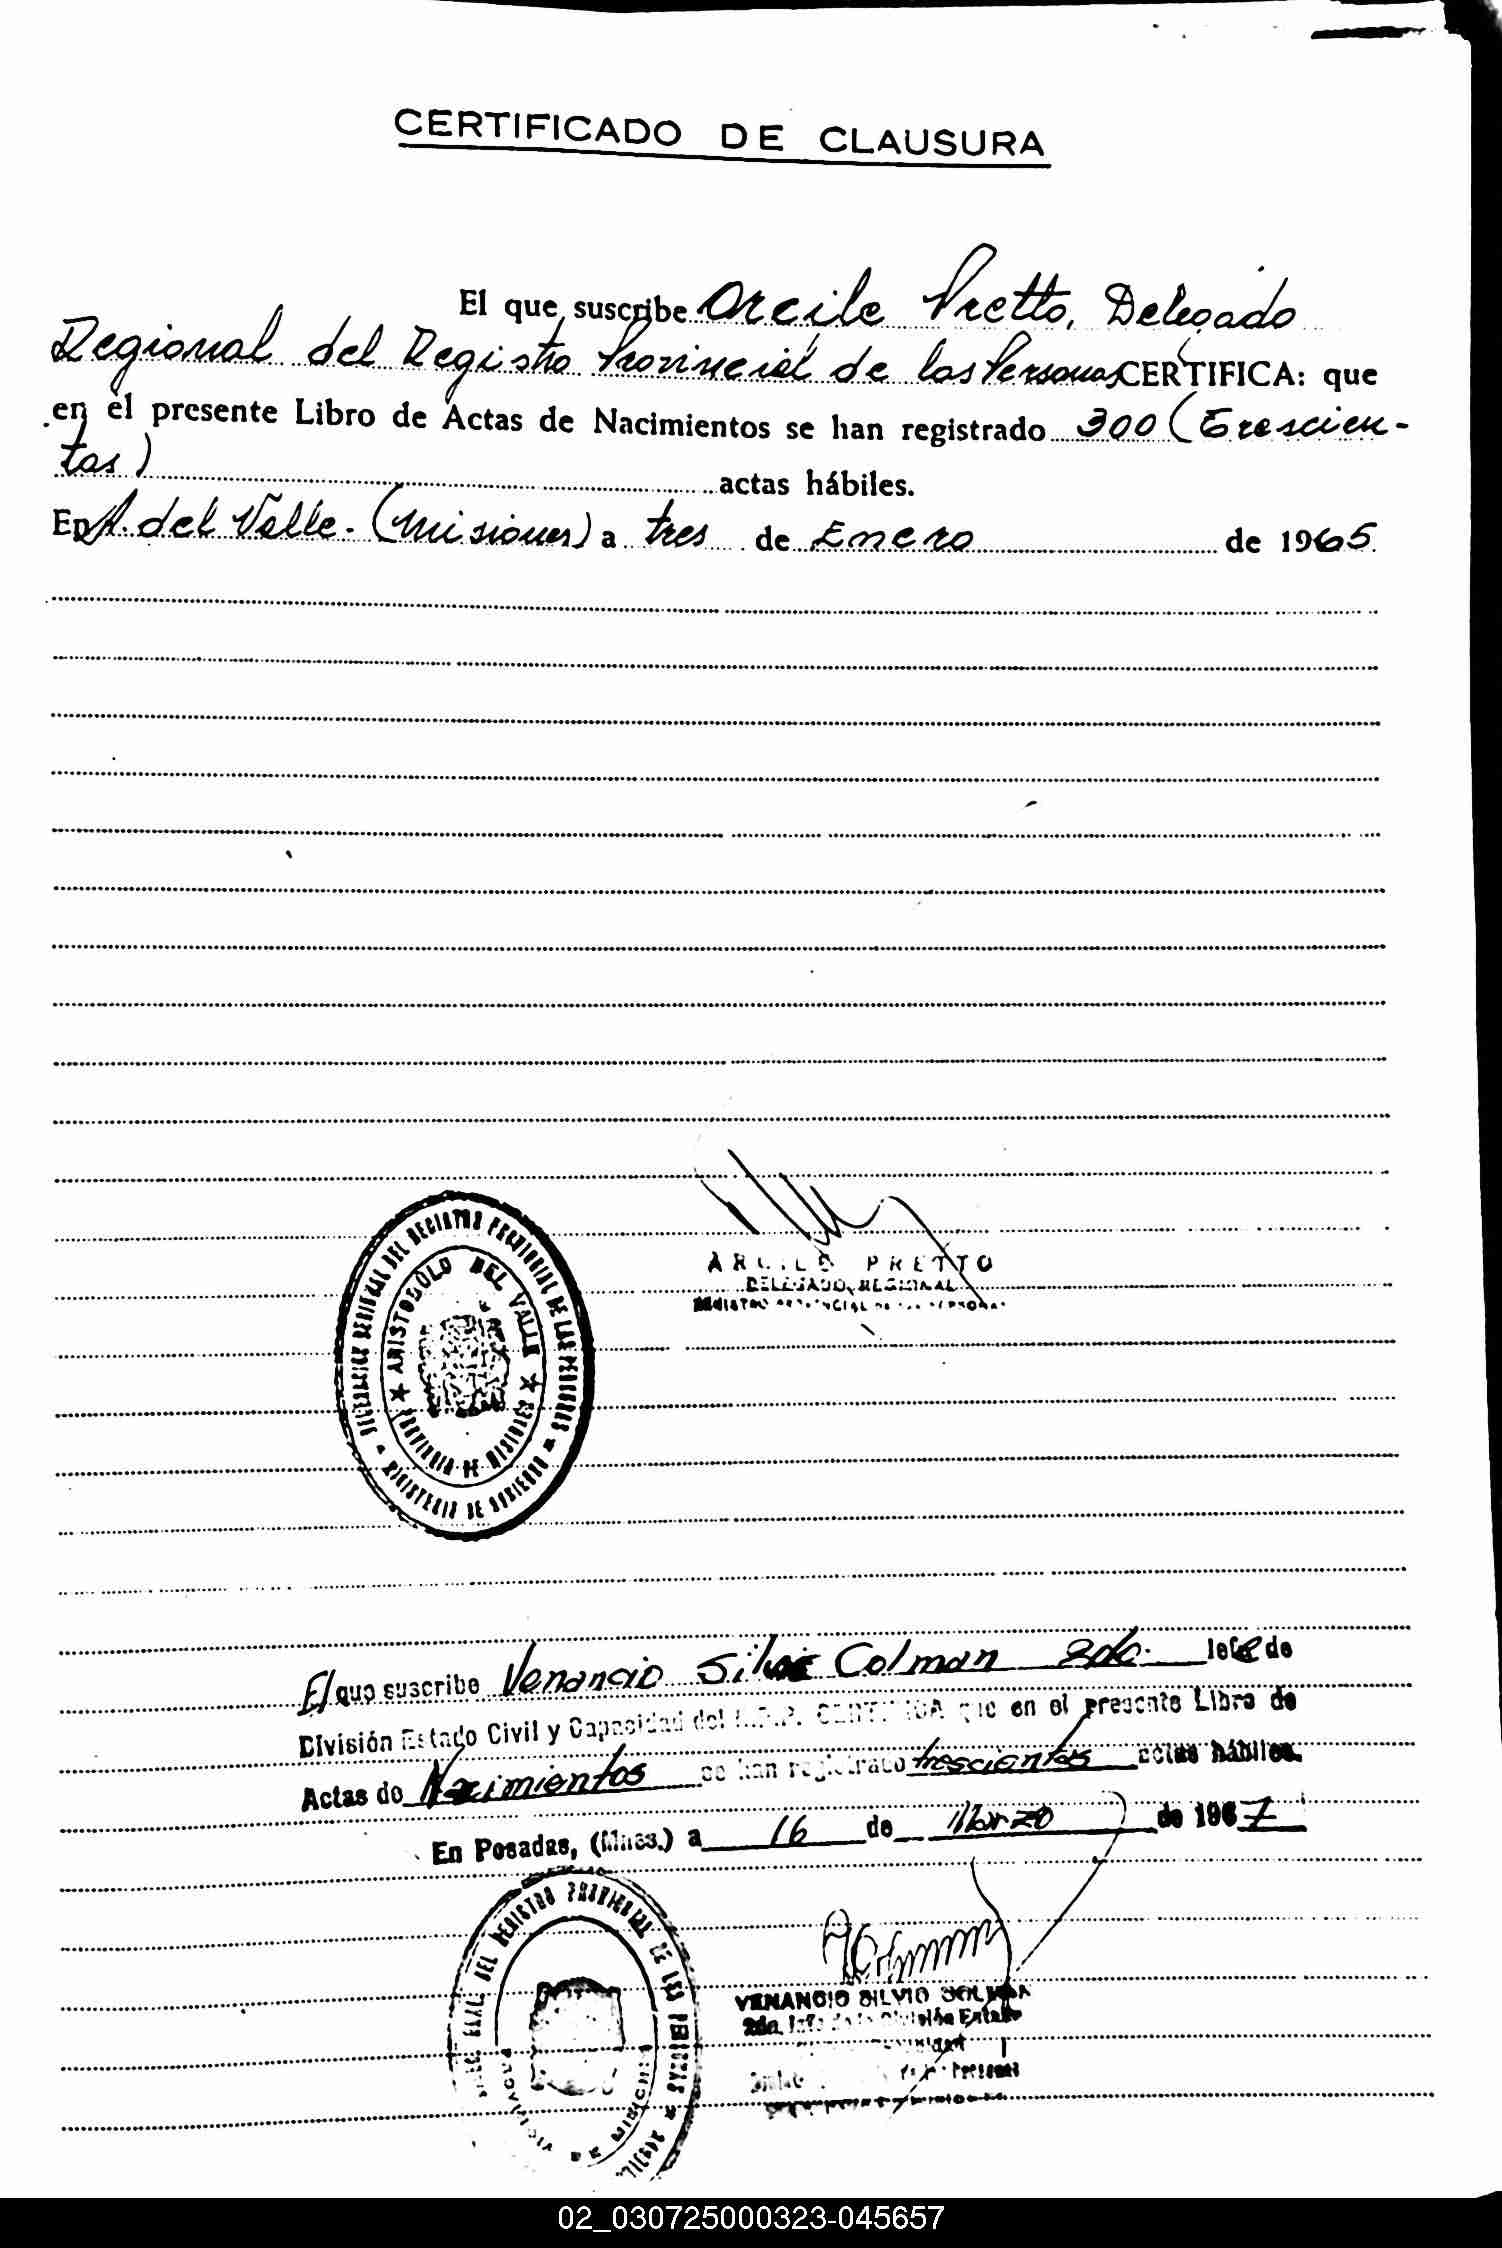 CERTIFICADO DE CLAUSURA
El que suscribe Arcile Pretto, Delegado
Regional del Registro Provincial de las Personas CERTIFICA: que
en el presente Libro de Actas de Nacimientos se han registrado 300 (Trescien-
tas) actas hábiles.
En A. del Valle. (Misiones) a tres de Enero de 1965
PRETTO
DELEGADO REGIONAL
DEL REGISTRO PROVINCIAL DE LAS PERSONAS
MINISTERIO DE GOBIERNO
ARISTOBULO DEL VALLE
PROVINCIA DE MISIONES
El que suscribe Venancio Silvio Colman 2do. Jefe de
División Estado Civil y Capacidad del R.P.P. CERTIFICA que en el presente Libro de
Actas de Nacimientos se han registrado trescientos actas hábiles.
En Posadas, (Mnes.) a 16 de Marzo de 1967
DEL REGISTRO PROVINCIAL DE LAS PERSONAS
VENANCIO SILVIO COLMAN
2do. Jefe de la División Estado
02_030725000323-045657